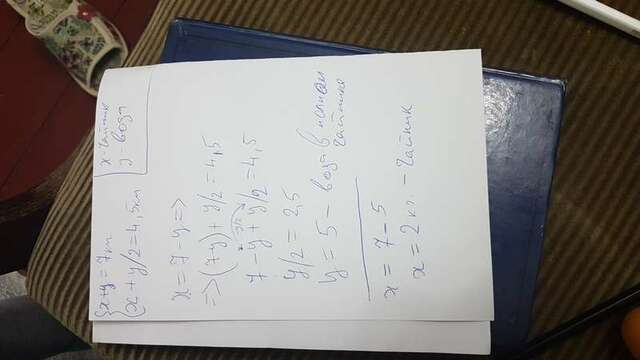 {x+y=7кг
{x+y/2=4,5кг
x-чайник
y-вода
x=7-y=>
=>(7-y)+y/2=4,5
7-y+y/2=4,5
y/2=2,5
y=5-вода в полном
чайнике
x=7-5
x=2кг.-чайник